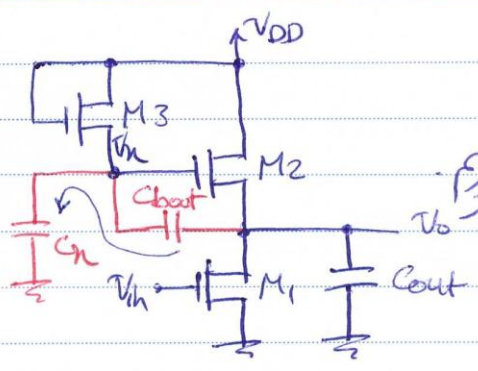 VDD
M3
Vx
M2
Cboot
Cx
Vo
Vin
M1
Cout